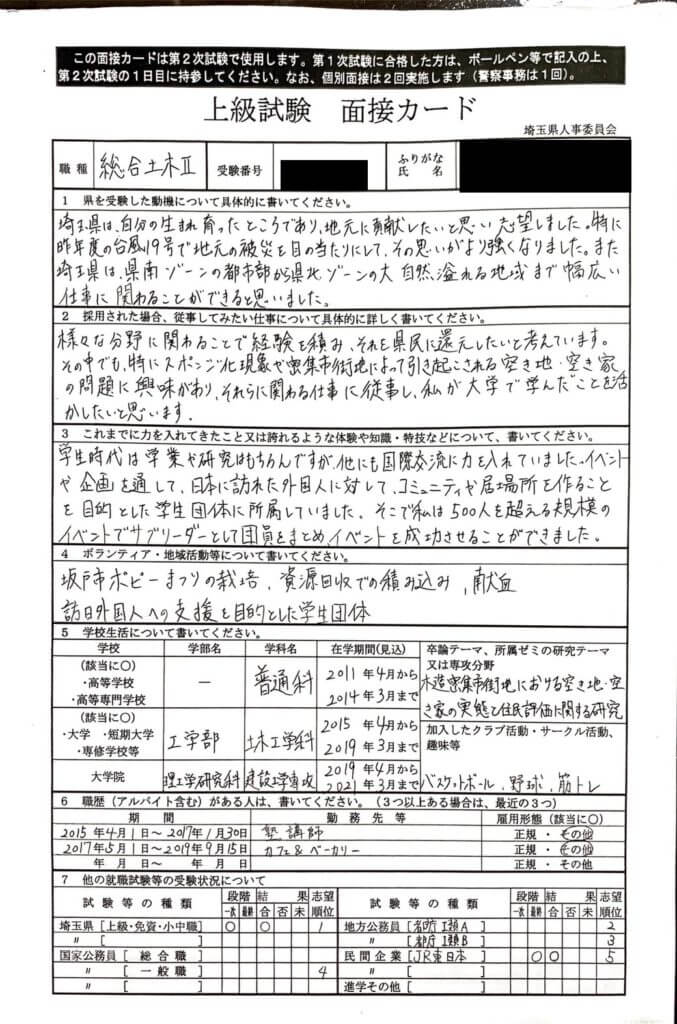 この面接カードは第2次試験で使用します。第1次試験に合格した方は、ボールペン等で記入の上、
第2次試験の1日目に持参してください。なお、個別面接は2回実施します(警察事務は1回)。
上級試験 面接カード
埼玉県人事委員会
職種 総合土木Ⅱ 受験番号 ふりがな 氏名
1 県を受験した動機について具体的に書いてください。
埼玉県は、自分の生まれ育ったところであり、地元に貢献したいと思い志望しました。特に
昨年度の台風19号で地元の被災を目の当たりにして、その思いがより強くなりました。また
埼玉県は、県南ゾーンの都市部から県北ゾーンの大自然溢れる地域まで幅広い
仕事に関わることができると思いました。
2 採用された場合、従事してみたい仕事について具体的に詳しく書いてください。
様々な分野に関わることで経験を積み、それを県民に還元したいと考えています。
その中でも、特にスポンジ化現象や密集市街地によって引き起こされる空き地・空き家
の問題に興味があり、それらに関わる仕事に従事し、私が大学で学んだことを活
かしたいと思います。
3 これまでに力を入れてきたこと又は誇れるような体験や知識・特技などについて、書いてください。
学生時代は学業や研究はもちろんですが、他にも国際交流に力を入れていました。イベント
や企画を通して、日本に訪れた外国人に対して、コミュニティや居場所を作ること
を目的とした学生団体に所属していました。そこで私は500人を超える規模の
イベントでサブリーダーとして団員をまとめ、イベントを成功させることができました。
4 ボランティア・地域活動等について書いてください。
坂戸市ポピーまつりの栽培、資源回収での積み込み、献血
訪日外国人への支援を目的とした学生団体
5 学校生活について書いてください。
学校 学部名 学科名 在学期間(見込) 卒論テーマ、所属ゼミの研究テーマ
又は専攻分野
(該当に○)
・高等学校
・高等専門学校
― 普通科 2011年4月から
2014年3月まで
木造密集市街地における空き地・空
き家の実態と住民評価に関する研究
(該当に○)
・大学 ・短期大学
・専修学校等
工学部 土木工学科 2015年4月から
2019年3月まで
加入したクラブ活動・サークル活動、
趣味等
大学院 理工学研究科 建設工学専攻 2019年4月から
2021年3月まで
バスケットボール、野球、筋トレ
6 職歴(アルバイト含む)がある人は、書いてください。(3つ以上ある場合は、最近の3つ)
期間 勤務先等 雇用形態(該当に○)
2015年4月1日~2017年1月30日 塾講師 正規・その他
2017年5月1日~2019年9月15日 カフェ&ベーカリー 正規・その他
年 月 日~ 年 月 日 正規・その他
7 他の就職試験等の受験状況について
試験等の種類 段階 結果 志望順位 試験等の種類 段階 結果 志望順位
一次 最終 合 否 未 一次 最終 合 否 未
埼玉県[上級・免資・小中職] ○ ○ 1 地方公務員[ Ⅰ類A] 2
〃 [ ] 〃 [都庁Ⅰ類B] 3
国家公務員[ 総合職 ] 民間企業[JR東日本] ○ ○ 5
〃 [ 一般職 ] 4 〃 [ ]
〃 [ ] 進学その他[ ]